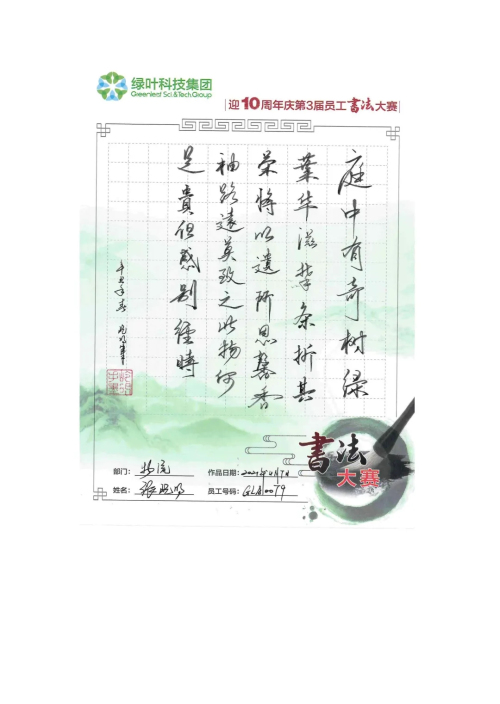 绿叶科技集团
Greenleaf Sci & Tech Group
迎10周年庆第3届员工书法大赛
庭中有奇树绿
葉华滋攀条折其
荣将以遗所思馨香
袖路遠莫致之此物何
足貴但感别经時
辛丑年春
书法
大赛
部门：物流
作品日期：2021年4月7日
姓名：
员工号码：GLA0079